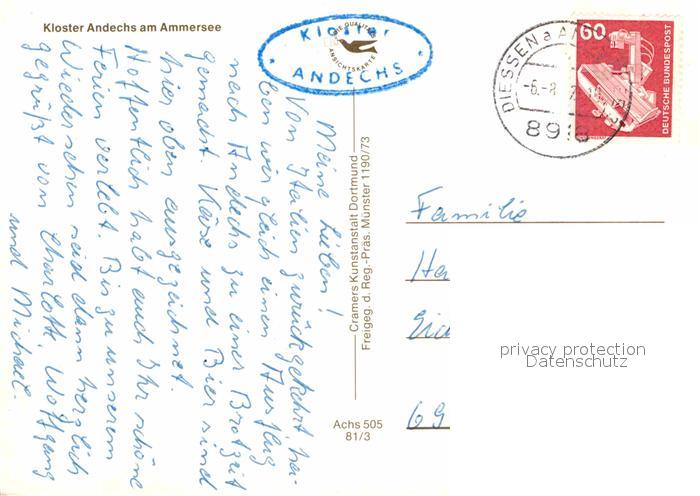 Kloster Andechs am Ammersee
Kloster
QUALITÄTS
ANSICHTSKARTE
ANDECHS
DIESSEN a A
-6.-8.
8918
60
DEUTSCHE BUNDESPOST
Meine Lieben!
Von Italien zurückgekehrt, ha-
ben wir gleich einen Ausflug
nach Andechs zu einer Brotzeit
gemacht. Käse und Bier sind
hier oben ausgezeichnet.
Hoffentlich habt auch Ihr schöne
Ferien verlebt. Bis zu unserem
Wiedersehen seid dann herzlich
gegrüßt von Charlott, Wolfgang
und Michael.
Cramers Kunstanstalt Dortmund
Freigeg. d. Reg.-Präs. Münster 1190/73
Achs 505
81/3
Familie
Ha
69
privacy protection
Datenschutz